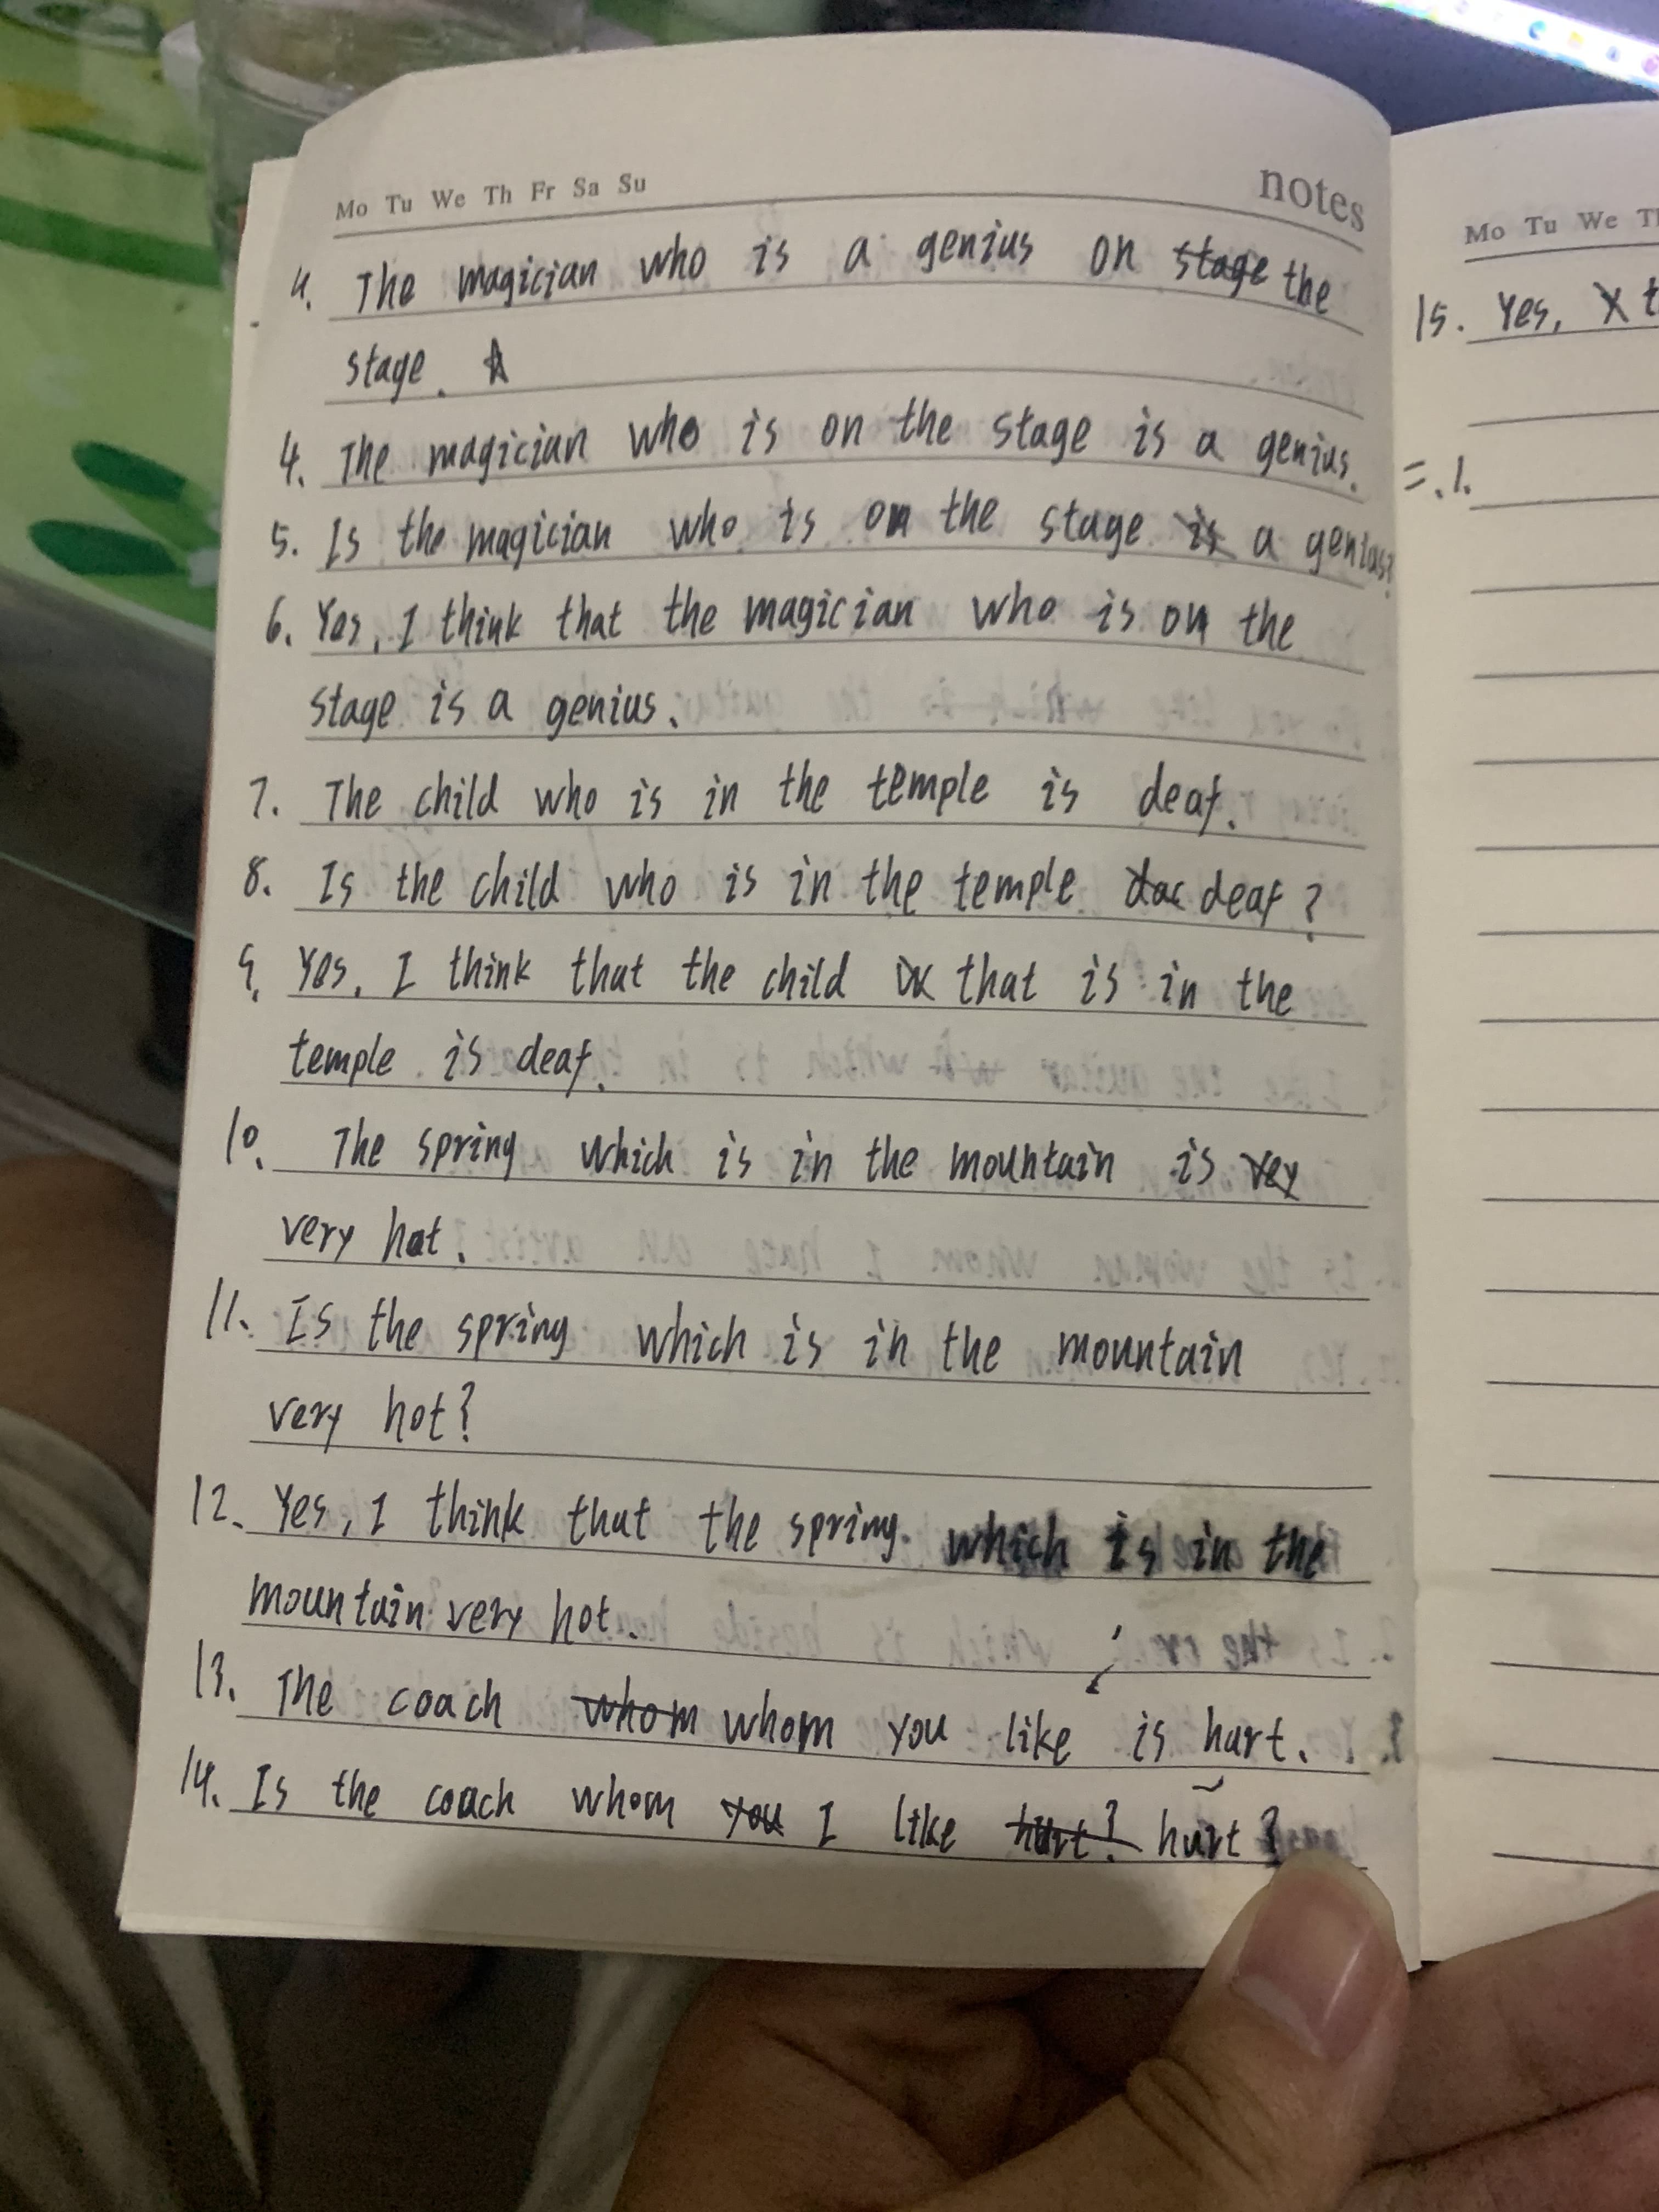 Mo Tu We Th Fr Sa Su
notes
4. The magician who is a genius on stage the
stage.
4. The magician who is on the stage is a genius.
5. Is the magician who is on the stage is a genius?
6. Yes, I think that the magician who is on the
stage is a genius.
7. The child who is in the temple is deaf.
8. Is the child who is in the temple deaf?
9. Yes, I think that the child that is in the
temple is deaf.
10. The spring which is in the mountain is vey
very hot.
11. Is the spring which is in the mountain
very hot?
12. Yes, I think that the spring which is in the
mountain very hot.
13. The coach whom whom you like is hurt.
14. Is the coach whom you I like hurt? hurt?
Mo Tu We
15. Yes,
=.1.